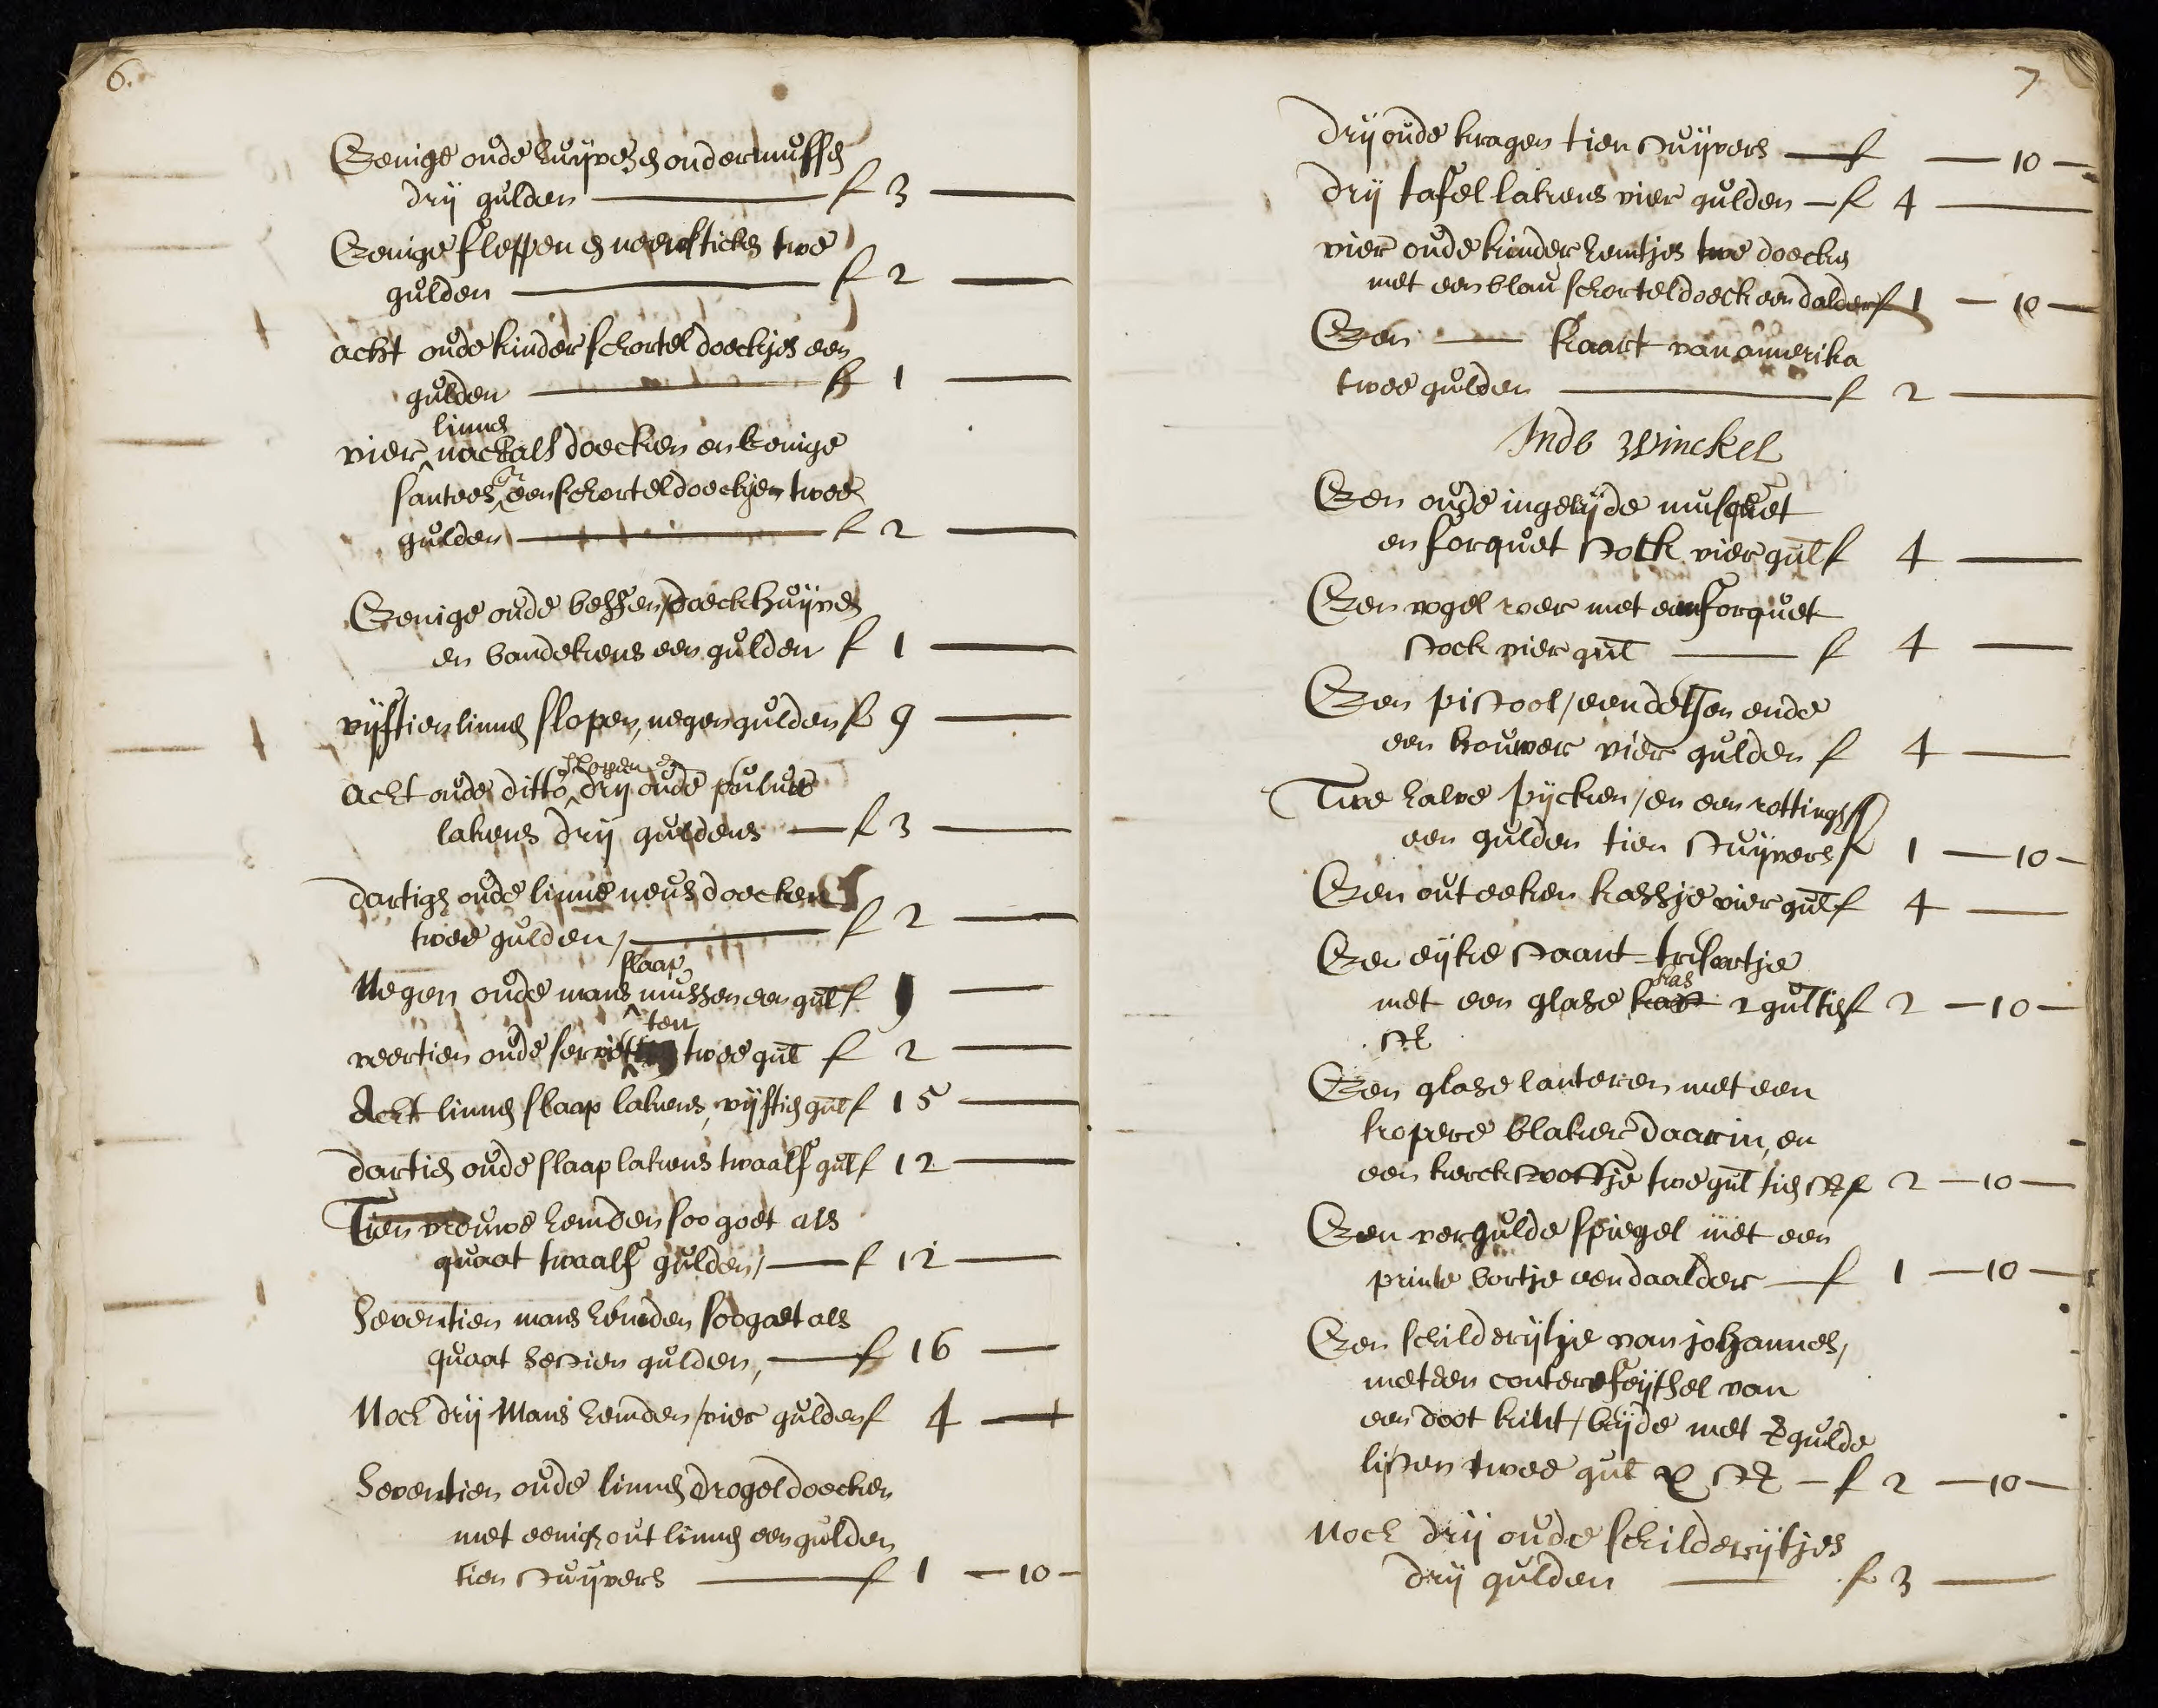 6.
Eenige oude huijves en ondermussen
drij gulden f 3
Eenige fleppen en neerstickes twe
gulden f 2
acht oude kinder schorteldoeckjes een
gulden f 1
linnen
vier nachals doecken en eenige
santees, een schorteldoeckjen twee
gulden f 2
Eenige oude beffen / doeckhuijves
en bandekens een gulden f 1
vijftien linnen slopen, negen gulden f 9
sloopen en
Acht oude ditto drij oude puluwe
lakens drij guldens f 3
dartigh oude linne neusdoecken
twee gulden / f 2
slaap
Negen oude mans mussen een gul f 1
ten
veertien oude servit twee gul f 2
Acht linnen slaaplakens, vijftien gul f 15
dartien oude slaaplakens twaalf gul f 12
Tien vrouwe hemden soo goet als
quaat twaalf gulden / f 12
Seventien mans hemden soo goet als
quaat sestien gulden, f 16
Noch drij Mans hemden / vier gulden f 4
Seventien oude linnen drogeldoecken
met eenich out linnen een gulden
tien stuijvers f 1 - 10 -
7
drij oude kragen tien stuijvers f - 10 -
drij tafellakens vier gulden - f 4
vier oude kinder hemtjes twe doeckes
met een blau schorteldoeck een dalder f 1 - 10 -
Een kaart van amerika
twee gulden f 2
Inde Winckel
Een oude ingeleijde musquet
en forquet stock vier gul f 4
Een vogel roer met een forquet
stock vier gul f 4
Een pistool / een delsen ende
een houwer vier gulden f 4
Twe halve pijcken / en een rotting
een gulden tien stuijvers f 1 - 10 -
Een out eeken kassje vier gul f 4
Een eijke staant-tresoortje
kas
met een glase 2 gul tien f 2 - 10 -
st
Een glase lanteren met een
kopere blaker daarin, en
een kerckstooftje twe gul tien st f 2 - 10 -
Een vergulde spiegel met een
printe bortje een daalder f 1 - 10 -
Een schilderijtje van johannes,
met een conterfeijtsel van
een doot kint / beijde met vergulde
lijsten twee gul x st - f 2 - 10 -
Noch drij oude schilderijtjes
drij gulden f 3